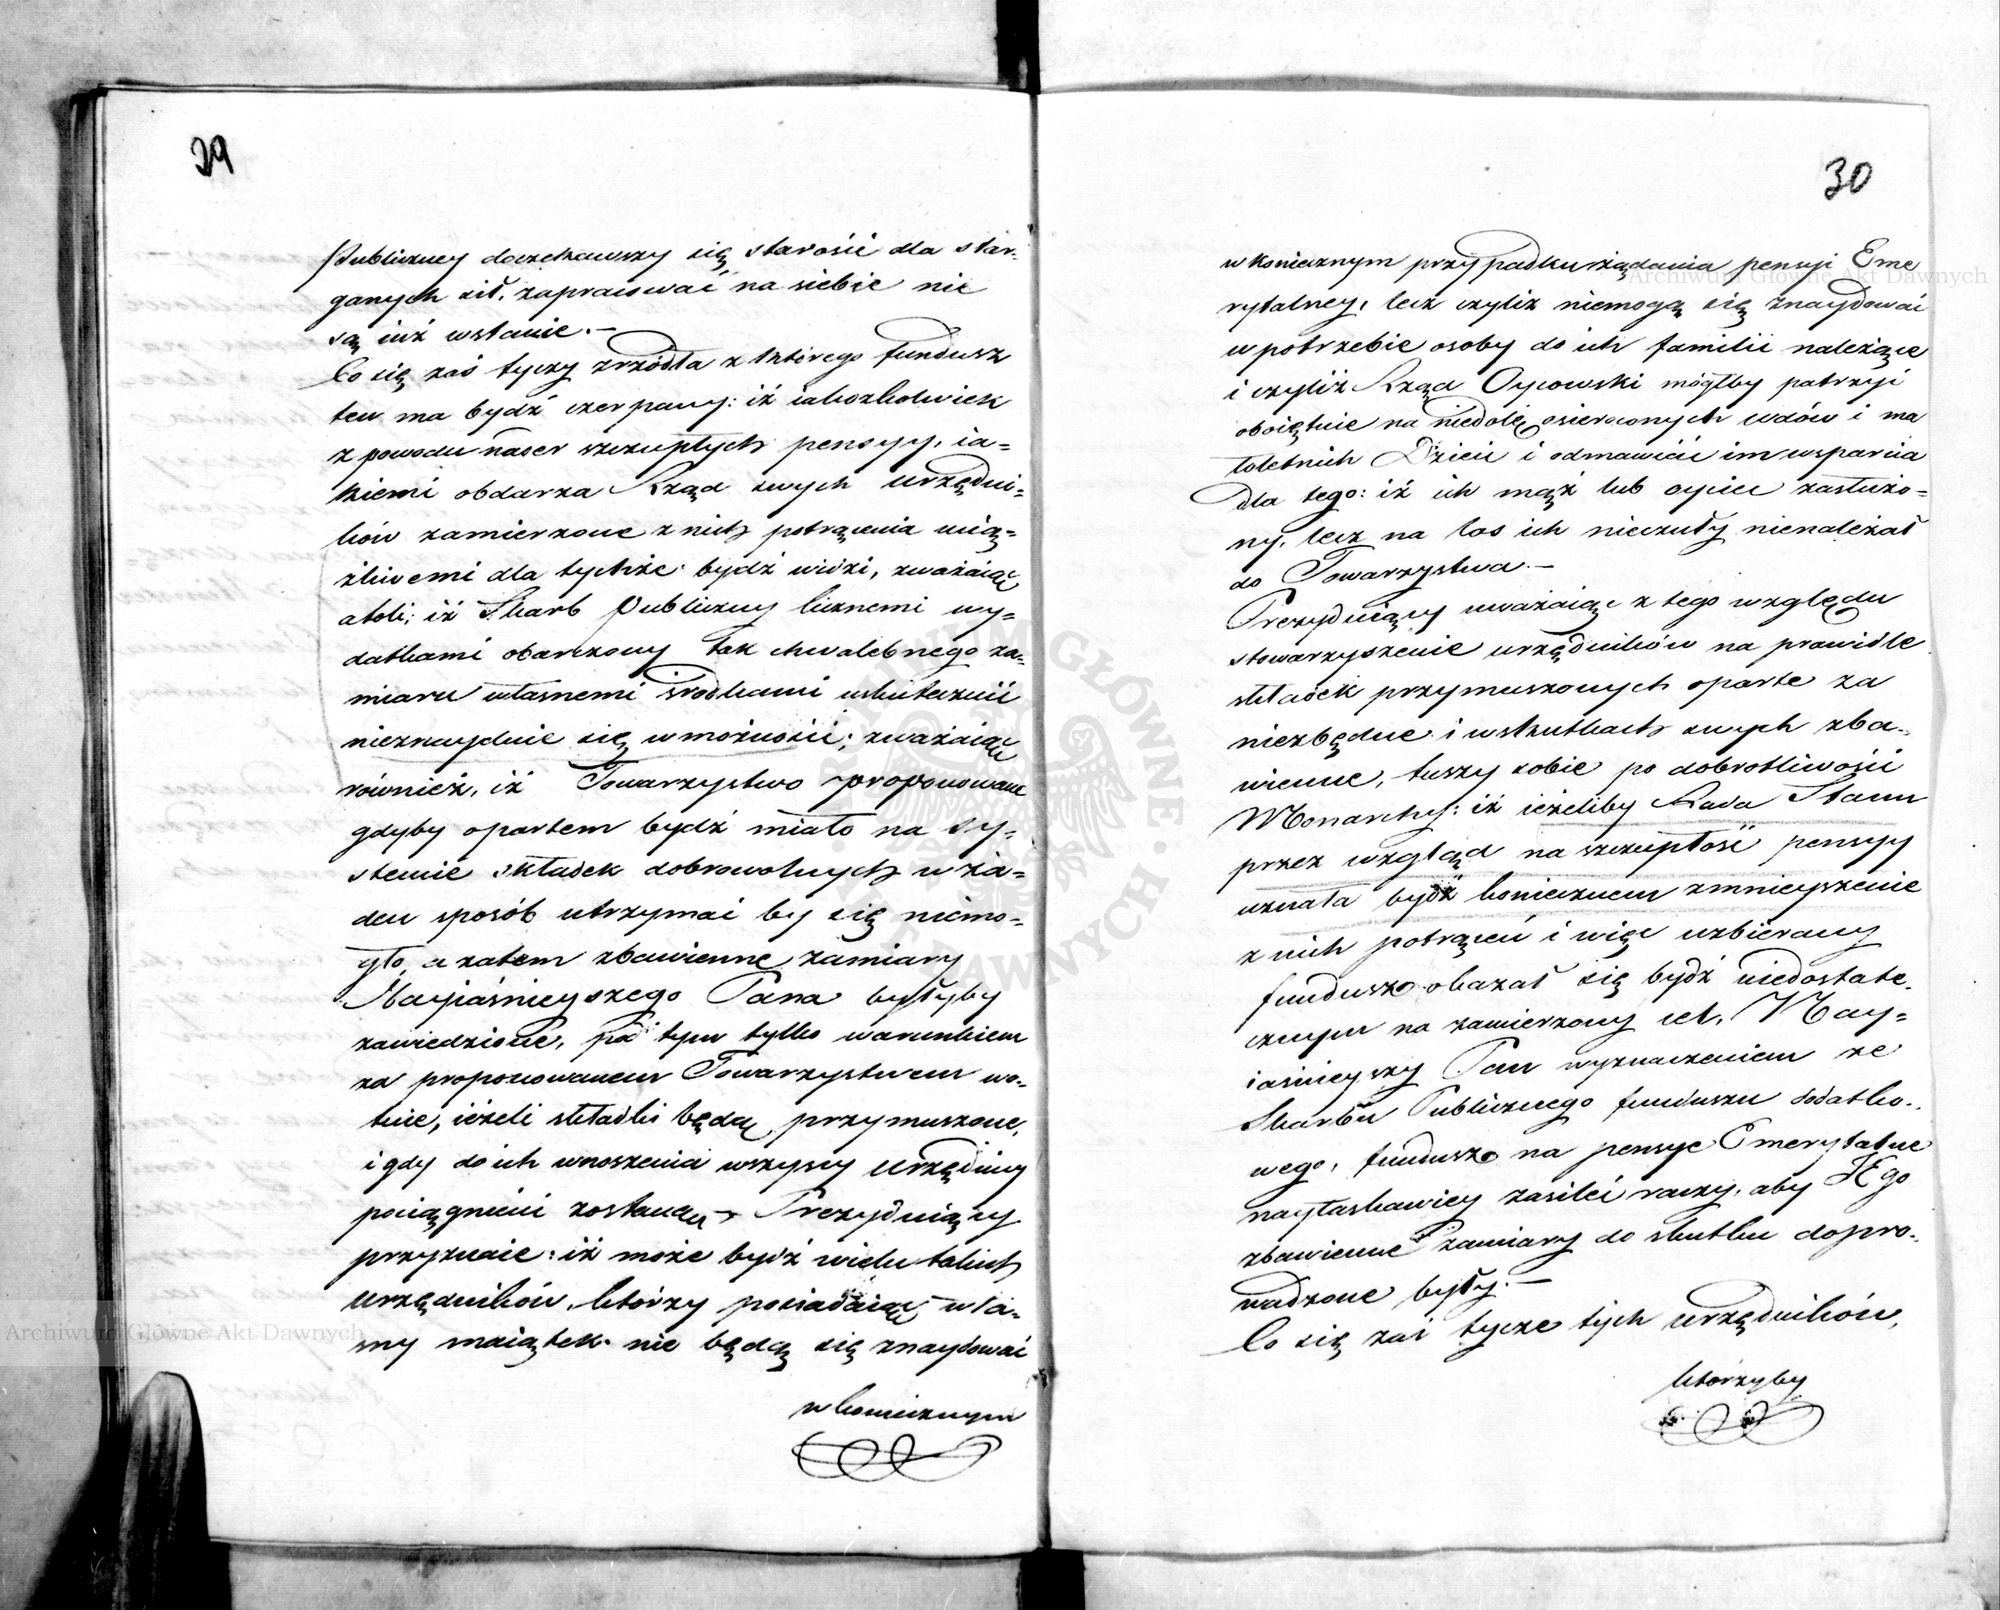 29
Publiczney doczekawszy się starości dla star-
ganych sił, zapracować na siebie nie
są iuż wstanie.—
Co się zaś tyczy zrzódła z którego fundusz
ten ma bydź czerpany: iż iakożkolwiek
z powodu naser szczupłych pensyy, ia=
kiemi obdarza Rząd swych urzędni=
ków zamierzone z nich potrącenia ucią=
żliwemi dla tychże bydź widzi, zważaiąc
atoli; iż Skarb Publiczny licznemi wy=
datkami obarczony tak chwalebnego za=
miaru własnemi środkami uskutecznić
nieznaydzie się w możności; zważaiąc
również, iż Towarzystwo proponowane
gdyby opartem bydź miało na sy=
stemie składek dobrowolnych w ża=
den sposób utrzymać by się niemo=
gło, a zatem zbawienne zamiary
Nayiaśnieyszego Pana byłyby
zawiedzione, pod tym tylko warunkiem
za proponowanem Towarzystwem wo-
tuie, ieżeli składki będą przymuszone,
i gdy do ich wnoszenia wszyscy urzędnicy
pociągnieni zostaną — Prezyduiący
przyznaie: iż może bydź wielu takich
urzędników, którzy posiadaiąc wła=
sny maiątek nie będą się znaydować
w koniecznym
30
w koniecznym przypadku żądania pensyi Eme
rytalney, lecz czyliż niemogą się znaydować
w potrzebie osoby do ich familii należące
i czyliż Rząd Oycowski mógłby patrzyć
oboiętnie na niedolę osieroconych wdów i ma
łoletnich Dzieci i odmawiać im wsparcia
dla tego: iż ich mąż lub oyciec zasłużo=
ny, lecz na los ich nieczuły nienależał
do Towarzystwa.—
Prezyduiący uważaiąc z tego względu
stowarzyszenie urzędników na prawidle
składek przymuszonych oparte za
niezbędne i w skutkach swych zba=
wienne, tuszy sobie po dobrotliwości
Monarchy: iż ieżeliby Rada Stanu
przez wzgląd na szczupłość pensyy
uznała bydź koniecznem zmnieyszenie
z nich potrąceń i więc uzbierany
fundusz okazał się bydź niedostate.
cznym na zamierzony cel, Nay=
iaśnieyszy Pan wyznaczeniem ze
Skarbu Publicznego funduszu dodatko..
wego, fundusz na pensye Emerytalne
nayłaskawiey zasilić raczy, aby JEgo
zbawienne zamiary do skutku dopro.
wadzone były.—
Co się zaś tycze tych urzędników,
którzyby
Archiwum Główne Akt Dawnych
Archiwum Główne Akt Dawnych
ARCHIWUM GŁÓWNE AKT DAWNYCH